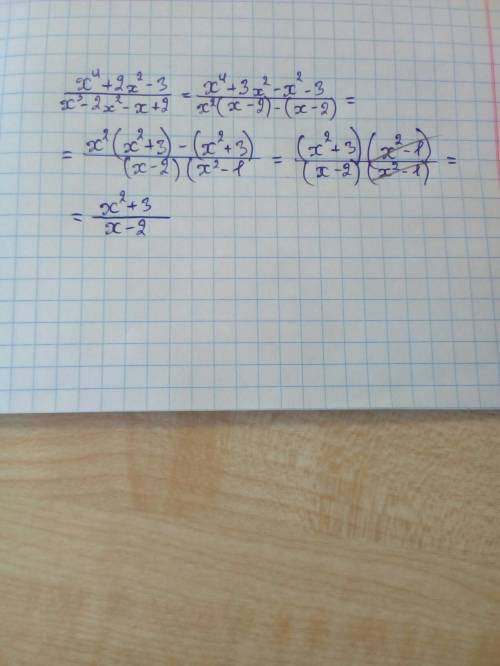 (x⁴+2x²-3)/(x³-2x²-x+2) = (x⁴+3x²-x²-3)/(x²(x-2)-(x-2)) =
= (x²(x²+3)-(x²+3))/((x-2)(x²-1) = ((x²+3)(x²-1))/((x-2)(x²-1)) =
= (x²+3)/(x-2)